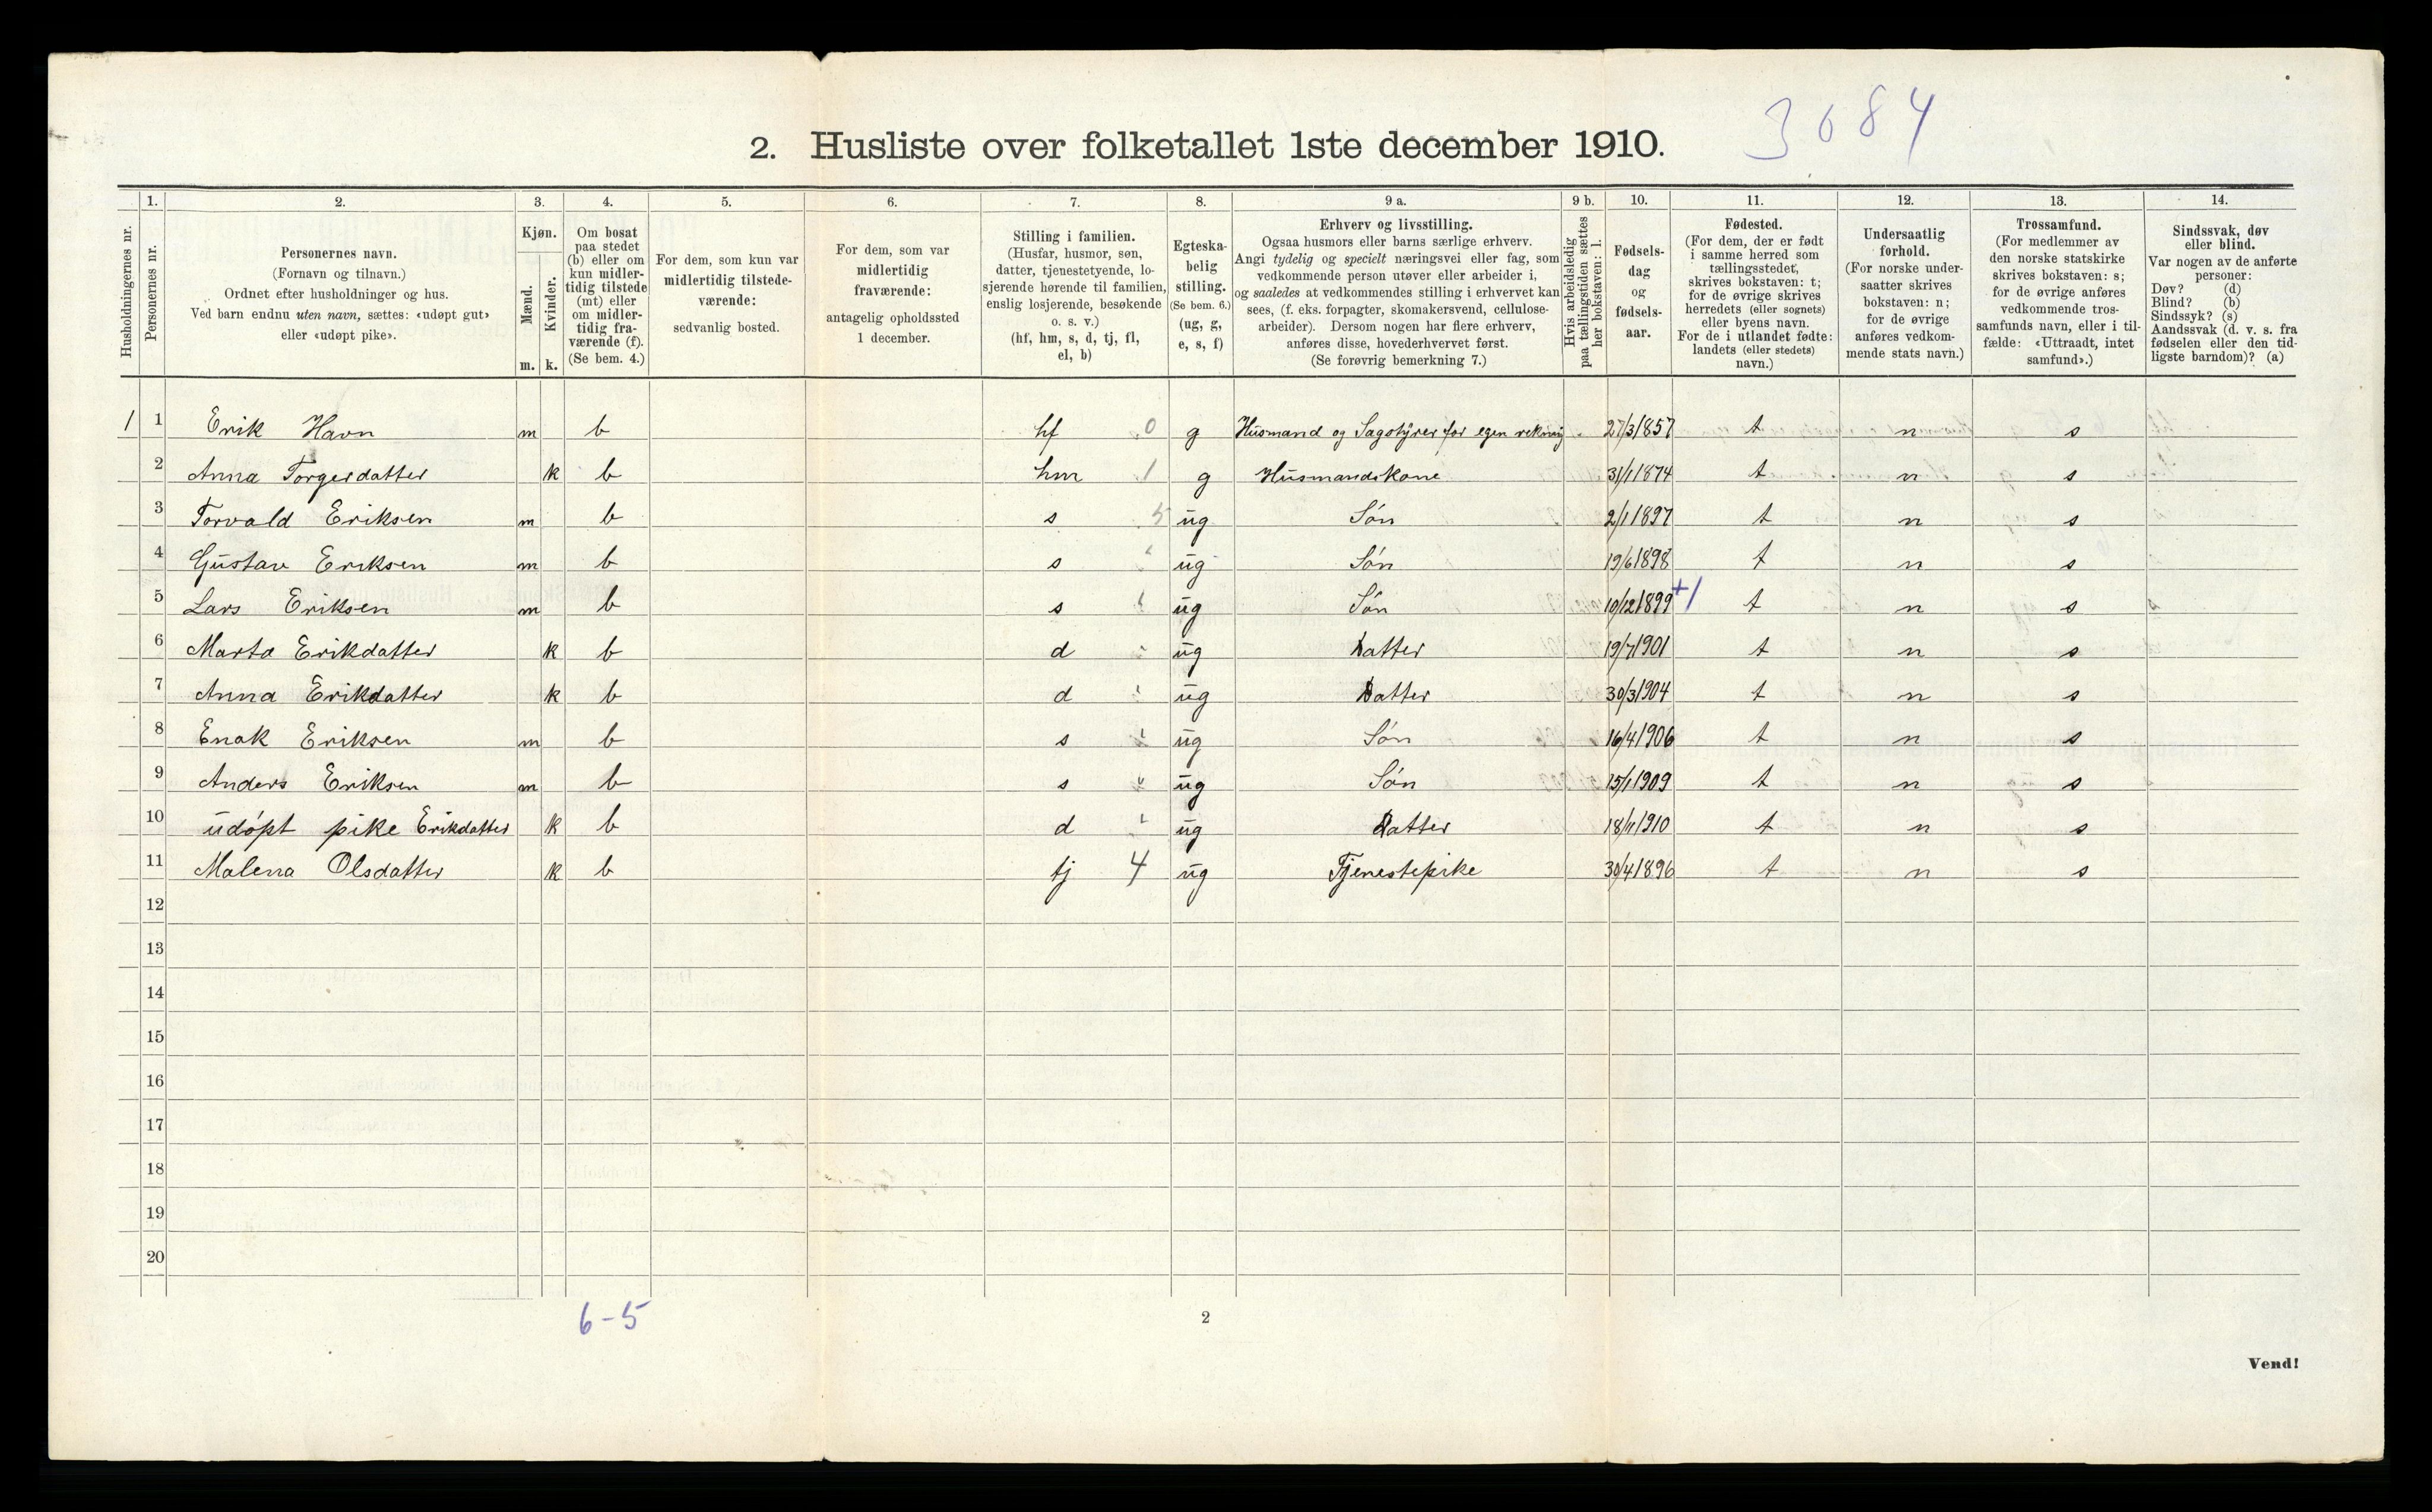 3684
2. Husliste over folketallet 1ste december 1910.
Husholdningernes nr.
1.
Personernes nr.
2.
Personernes navn.
(Fornavn og tilnavn.)
Ordnet efter husholdninger og hus.
Ved barn endnu uten navn, sættes: «udøpt gut»
eller «udøpt pike».
3.
Kjøn.
Mænd.
Kvinder.
m. k.
4.
Om bosat
paa stedet
(b) eller om
kun midler-
tidig tilstede
(mt) eller
om midler-
tidig fra-
værende (f).
(Se bem. 4.)
5.
For dem, som kun var
midlertidig tilstede-
værende:
sedvanlig bosted.
6.
For dem, som var
midlertidig
fraværende:
antagelig opholdssted
1 december.
7.
Stilling i familien.
(Husfar, husmor, søn,
datter, tjenestetyende, lo-
sjerende hørende til familien,
enslig losjerende, besøkende
o. s. v.)
(hf, hm, s, d, tj, fl,
el, b)
8.
Egteska-
belig
stilling.
(Se bem. 6.)
(ug, g,
e, s, f)
9 a.
Erhverv og livsstilling.
Ogsaa husmors eller barns særlige erhverv.
Angi tydelig og specielt næringsvei eller fag, som
vedkommende person utøver eller arbeider i,
og saaledes at vedkommendes stilling i erhvervet kan
sees, (f. eks. forpagter, skomakersvend, cellulose-
arbeider). Dersom nogen har flere erhverv,
anføres disse, hovederhvervet først.
(Se forøvrig bemerkning 7.)
9 b.
Hvis arbeidsledig
paa tællingstiden sættes
her bokstaven: l.
10.
Fødsels-
dag
og
fødsels-
aar.
11.
Fødested.
(For dem, der er født
i samme herred som
tællingsstedet,
skrives bokstaven: t;
for de øvrige skrives
herredets (eller sognets)
eller byens navn.
For de i utlandet fødte:
landets (eller stedets)
navn.)
12.
Undersaatlig
forhold.
(For norske under-
saatter skrives
bokstaven: n;
for de øvrige
anføres vedkom-
mende stats navn.)
13.
Trossamfund.
(For medlemmer av
den norske statskirke
skrives bokstaven: s;
for de øvrige anføres
vedkommende tros-
samfunds navn, eller i til-
fælde: «Uttraadt, intet
samfund».)
14.
Sindssvak, døv
eller blind.
Var nogen av de anførte
personer:
Døv? (d)
Blind? (b)
Sindssyk? (s)
Aandssvak (d. v. s. fra
fødselen eller den tid-
ligste barndom)? (a)
1 1 Erik Havn m b hf 0 g Husmand og Sagstyrer for egen rekning 27/3 1857 t n s
2 Anna Torgersdatter k b hm 1 g Husmandskone 31/1 1874 t n s
3 Torvald Eriksen m b s 5 ug Søn 2/1 1897 t n s
4 Gustav Eriksen m b s " ug Søn 19/6 1898 t n s
5 Lars Eriksen m b s " ug Søn 10/12 1899 +1 t n s
6 Marta Erikdatter k b d " ug Datter 19/7 1901 t n s
7 Anna Erikdatter k b d " ug Datter 30/3 1904 t n s
8 Enok Eriksen m b s " ug Søn 16/4 1906 t n s
9 Anders Eriksen m b s " ug Søn 15/1 1909 t n s
10 udøpt pike Erikdatter k b d " ug Datter 18/11 1910 t n s
11 Malena Olsdatter k b tj 4 ug Tjenestepike 30/4 1896 t n s
12
13
14
15
16
17
18
19
20
6-5
2
Vend!